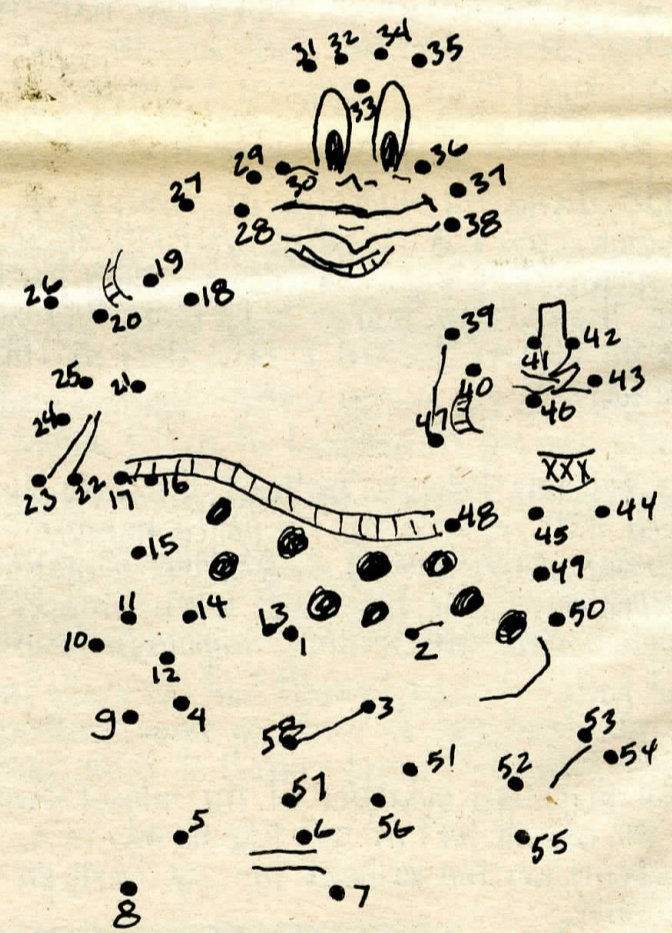 31 32 34 35
33
29 30 36
27 37
28 38
19
26 20 18
39
41 42
25 21 40 43
24 47 46
XXX
23 22 17 16
48 45 44
15
49
11 14 13 50
10 1 2
12
9 4 3
58 53
51 52 54
57
5 6 56 55
7
8